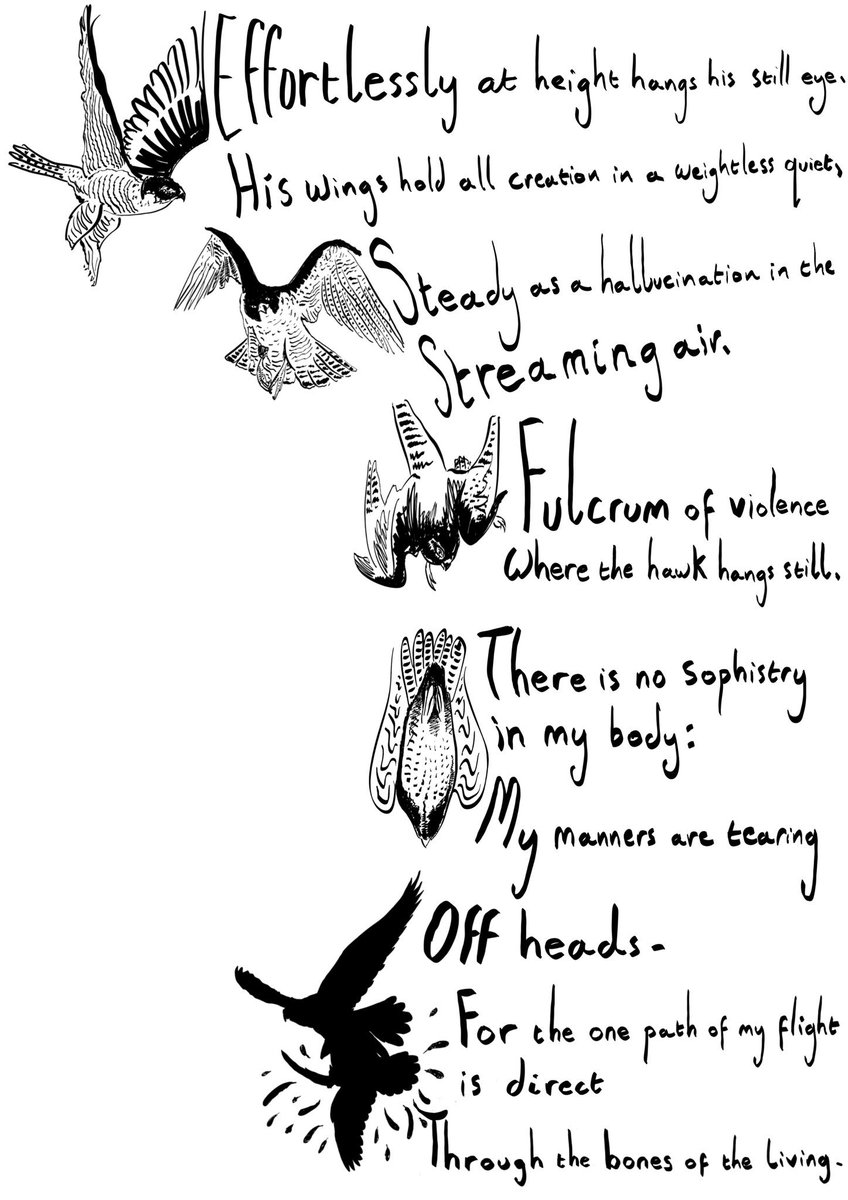 Effortlessly at height hangs his still eye.
His wings hold all creation in a weightless quiet,
Steady as a hallucination in the
Streaming air.
Fulcrum of violence
Where the hawk hangs still.
There is no sophistry
in my body:
My manners are tearing
Off heads-
For the one path of my flight
is direct
Through the bones of the living.